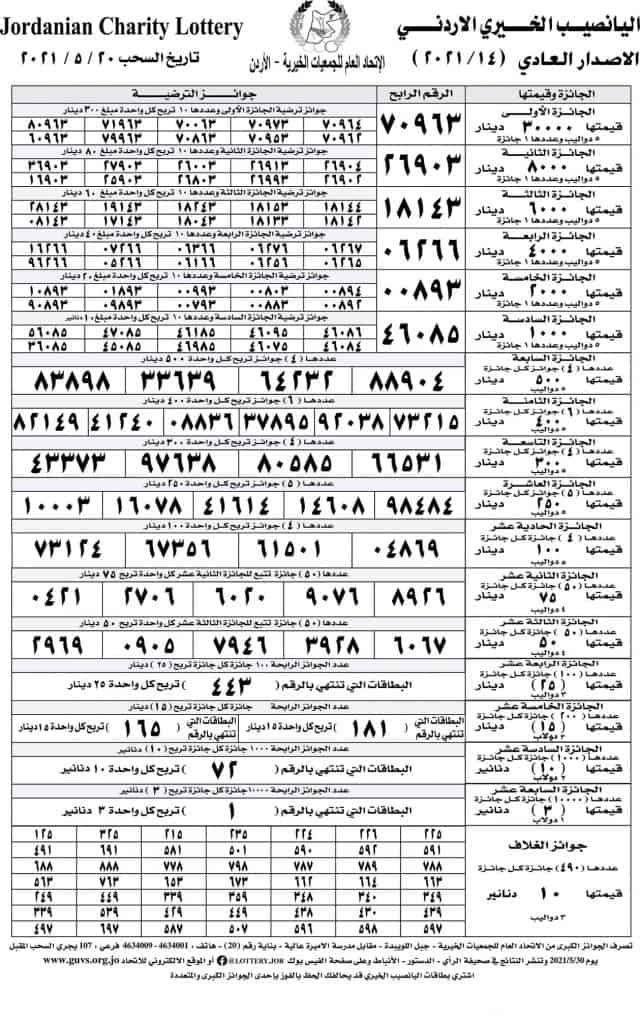 Jordanian Charity Lottery
اليانصيب الخيري الاردني
الاصدار العادي (٢٠٢١/١٤)
الإتحاد العام للجمعيات الخيرية - الأردن
تاريخ السحب ٢٠ / ٥ / ٢٠٢١
الجائزة وقيمتها
الرقم الرابح
جوائز الترضية
الجائزة الأولى
قيمتها ٣٠٠٠٠ دينار
٥ دواليب وعددها ١ جائزة
٧٠٩٦٣
جوائز ترضية الجائزة الأولى وعددها ١٠ تربح كل واحدة مبلغ ٣٠٠ دينار
٧٠٩٦٤ ٧٠٩٧٣ ٧٠٠٦٣ ٧١٩٦٣ ٨٠٩٦٣
٧٠٩٦٢ ٧٠٩٥٣ ٧٠٨٦٣ ٧٩٩٦٣ ٦٠٩٦٣
الجائزة الثانية
قيمتها ٨٠٠٠ دينار
٥ دواليب وعددها ١ جائزة
٢٦٩٠٣
جوائز ترضية الجائزة الثانية وعددها ١٠ تربح كل واحدة مبلغ ٨٠ دينار
٢٦٩٠٤ ٢٦٩١٣ ٢٦٠٠٣ ٢٧٩٠٣ ٣٦٩٠٣
٢٦٩٠٢ ٢٦٩٩٣ ٢٦٨٠٣ ٢٥٩٠٣ ١٦٩٠٣
الجائزة الثالثة
قيمتها ٦٠٠٠ دينار
٥ دواليب وعددها ١ جائزة
١٨١٤٣
جوائز ترضية الجائزة الثالثة وعددها ١٠ تربح كل واحدة مبلغ ٦٠ دينار
١٨١٤٤ ١٨١٥٣ ١٨٢٤٣ ١٩١٤٣ ٢٨١٤٣
١٨١٤٢ ١٨١٣٣ ١٨٠٤٣ ١٧١٤٣ ٠٨١٤٣
الجائزة الرابعة
قيمتها ٤٠٠٠ دينار
٥ دواليب وعددها ١ جائزة
٠٦٢٦٦
جوائز ترضية الجائزة الرابعة وعددها ١٠ تربح كل واحدة مبلغ ٤٠ دينار
٠٦٢٦٧ ٠٦٢٧٦ ٠٦٣٦٦ ٠٧٢٦٦ ١٦٢٦٦
٠٦٢٦٥ ٠٦٢٥٦ ٠٦١٦٦ ٠٥٢٦٦ ٩٦٢٦٦
الجائزة الخامسة
قيمتها ٢٠٠٠ دينار
٥ دواليب وعددها ١ جائزة
٠٠٨٩٣
جوائز ترضية الجائزة الخامسة وعددها ١٠ تربح كل واحدة مبلغ ٢٠ دينار
٠٠٨٩٤ ٠٠٨٠٣ ٠٠٩٩٣ ٠١٨٩٣ ١٠٨٩٣
٠٠٨٩٢ ٠٠٨٨٣ ٠٠٧٩٣ ٠٩٨٩٣ ٩٠٨٩٣
الجائزة السادسة
قيمتها ١٠٠٠ دينار
٥ دواليب وعددها ١ جائزة
٤٦٠٨٥
جوائز ترضية الجائزة السادسة وعددها ١٠ تربح كل واحدة مبلغ ١٠ دنانير
٤٦٠٨٦ ٤٦٠٩٥ ٤٦١٨٥ ٤٧٠٨٥ ٥٦٠٨٥
٤٦٠٨٤ ٤٦٠٧٥ ٤٦٩٨٥ ٤٥٠٨٥ ٣٦٠٨٥
الجائزة السابعة
عددها (٤) جوائز كل جائزة
قيمتها ٥٠٠ دينار
٥ دواليب
عددها (٤) جوائز تربح كل واحدة ٥٠٠ دينار
٨٨٩٠٤ ٦٤٢٣٢ ٣٣٦٣٩ ٨٣٨٩٨
الجائزة الثامنة
عددها (٦) جوائز كل جائزة
قيمتها ٤٠٠ دينار
٥ دواليب
عددها (٦) جوائز تربح كل واحدة ٤٠٠ دينار
٧٣٢١٥ ٩٢٠٣٨ ٣٧٨٩٥ ٠٨٨٣٦ ٤١٢٤٠ ٨٢١٤٩
الجائزة التاسعة
عددها (٤) جوائز كل جائزة
قيمتها ٣٠٠ دينار
٥ دواليب
عددها (٤) جوائز تربح كل واحدة ٣٠٠ دينار
٦٦٥٣١ ٨٠٥٨٥ ٩٧٦٣٨ ٤٣٣٧٣
الجائزة العاشرة
عددها (٥) جوائز كل جائزة
قيمتها ٢٥٠ دينار
٥ دواليب
عددها (٥) جوائز تربح كل واحدة ٢٥٠ دينار
٩٨٤٨٤ ١٤٦٠٨ ٤١٦١٤ ١٦٠٧٨ ١٠٠٠٣
الجائزة الحادية عشر
عددها (٤) جائزة كل جائزة
قيمتها ١٠٠ دينار
٥ دواليب
عددها (٤) جوائز تربح كل واحدة ١٠٠ دينار
٠٤٨٦٩ ٦١٥٠١ ٦٧٣٥٦ ٧٣١٢٤
الجائزة الثانية عشر
عددها (٥٠) جائزة كل جائزة
قيمتها ٧٥ دينار
٤ دواليب
عددها (٥٠) جائزة تتبع للجائزة الثانية عشر كل واحدة تربح ٧٥ دينار
٨٩٢٦ ٩٠٧٦ ٦٠٢٠ ٢٧٠٦ ٠٤٢١
الجائزة الثالثة عشر
عددها (٥٠) جائزة كل جائزة
قيمتها ٥٠ دينار
٤ دواليب
عددها (٥٠) جائزة تتبع للجائزة الثالثة عشر كل واحدة تربح ٥٠ دينار
٦٠٦٧ ٣٩٢٨ ٧٩٤٦ ٠٩٠٥ ٢٩٦٩
الجائزة الرابعة عشر
عددها (١٠٠) جائزة كل جائزة
قيمتها (٢٥) دينار
٣ دواليب
عدد الجوائز الرابحة ١٠٠ جائزة كل جائزة تربح (٢٥) دينار
البطاقات التي تنتهي بالرقم ( ٤٤٣ ) تربح كل واحدة ٢٥ دينار
الجائزة الخامسة عشر
عددها (٢٠٠) جائزة كل جائزة
قيمتها (١٥) دينار
٣ دولاب
عدد الجوائز الرابحة جائزة كل جائزة تربح (١٥) دينار
البطاقات التي تنتهي بالرقم ( ١٨١ ) تربح كل واحدة ١٥ دينار
البطاقات التي تنتهي بالرقم ( ١٦٥ ) تربح كل واحدة ١٥ دينار
الجائزة السادسة عشر
عددها (١٠٠٠) جائزة كل جائزة
قيمتها (١٠) دنانير
٢ دولاب
عدد الجوائز الرابحة ١٠٠٠ جائزة كل جائزة تربح (١٠) دنانير
البطاقات التي تنتهي بالرقم ( ٧٢ ) تربح كل واحدة ١٠ دنانير
الجائزة السابعة عشر
عددها (١٠٠٠٠) جائزة كل جائزة
قيمتها (٣) دنانير
١ دولاب
عدد الجوائز الرابحة ١٠٠٠٠ جائزة كل جائزة تربح (٣) دنانير
البطاقات التي تنتهي بالرقم ( ١ ) تربح كل واحدة ٣ دنانير
جوائز الغلاف
عددها (٤٩٠) جائزة كل جائزة
قيمتها ١٠ دنانير
٣ دواليب
٢٢٥ ٢٢٦ ٢٢٤ ٢٣٥ ٢١٥ ٣٢٥ ١٢٥
٥٩١ ٥٩٢ ٥٩٠ ٥٠١ ٥٨١ ٦٩١ ٤٩١
٧٨٨ ٧٨٩ ٧٨٧ ٧٩٨ ٧٧٨ ٨٨٨ ٦٨٨
٦٦٣ ٦٦٤ ٦٦٢ ٦٧٣ ٦٥٣ ٧٦٣ ٥٦٣
٣٤٩ ٣٤٠ ٣٤٨ ٣٥٩ ٣٣٩ ٤٤٩ ٢٤٩
٤٣٩ ٤٣٠ ٤٣٨ ٤٤٩ ٤٢٩ ٥٣٩ ٣٣٩
٥٩٧ ٥٩٨ ٥٩٦ ٥٠٧ ٥٨٧ ٦٩٧ ٤٩٧
تصرف الجوائز الكبرى من الاتحاد العام للجمعيات الخيرية - جبل اللويبدة - مقابل مدرسة الاميرة عالية - بناية رقم (20) - هاتف ، 4634001 - 4634009 فرعي ، 107 يجري السحب المقبل
يوم 2021/5/30 وتنشر النتائج في صحيفة الرأي - الدستور - الأنباط وعلى صفحة الفيس بوك @LOTTERY.JOR أو الموقع الالكتروني للاتحاد www.guvs.org.jo
اشتري بطاقات اليانصيب الخيري قد يحالفك الحظ بالفوز بإحدى الجوائز الكبرى والمتعددة